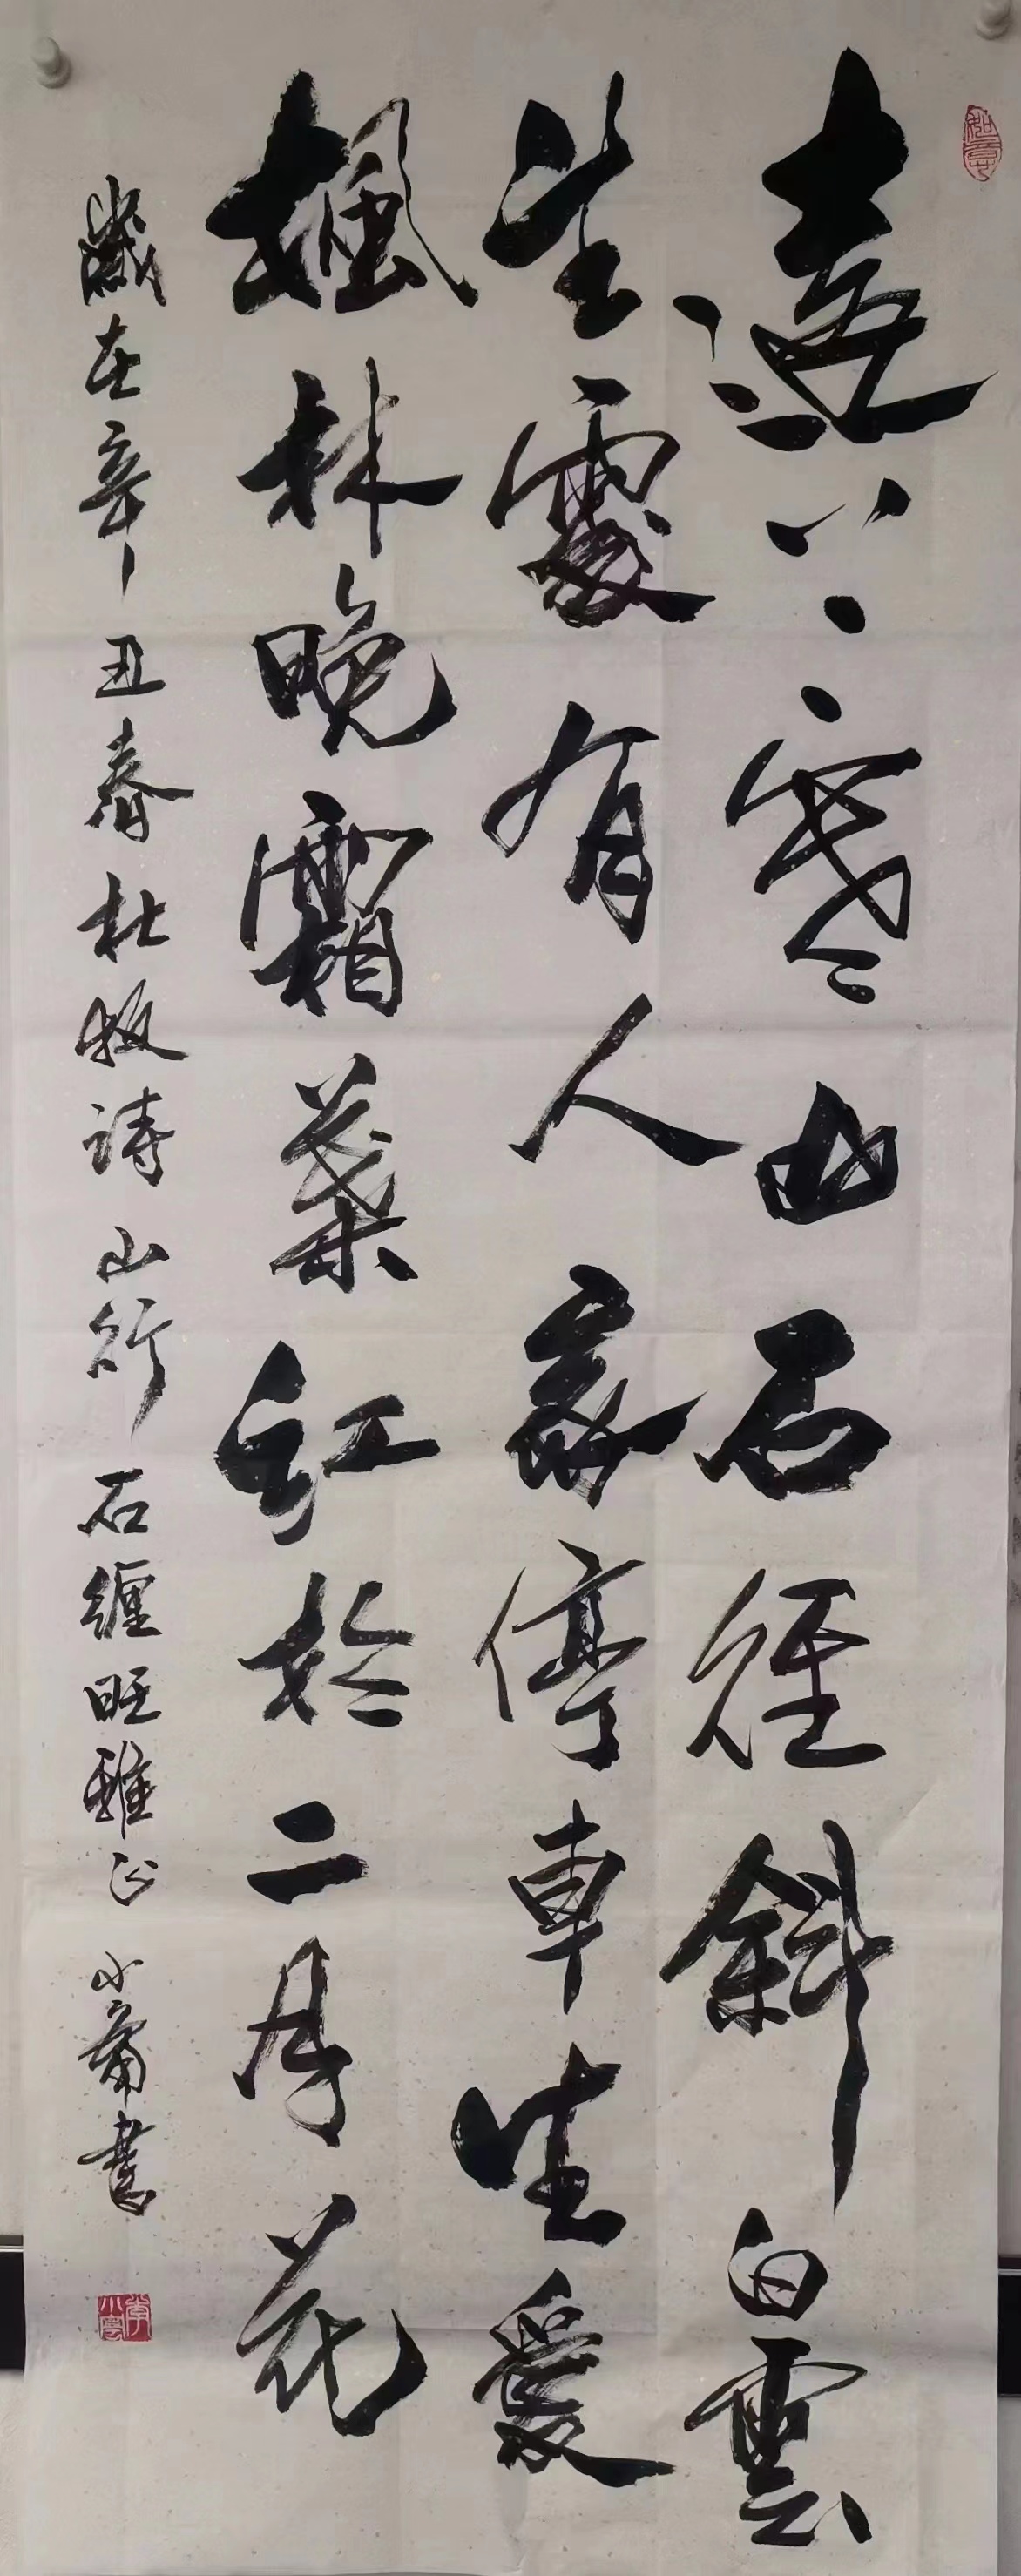 遠上寒山石徑斜白雲
生處有人家停車坐愛
楓林晚霜葉紅於二月花
歲在辛丑春杜牧詩 山行 石纏旺雅正 小書
如意